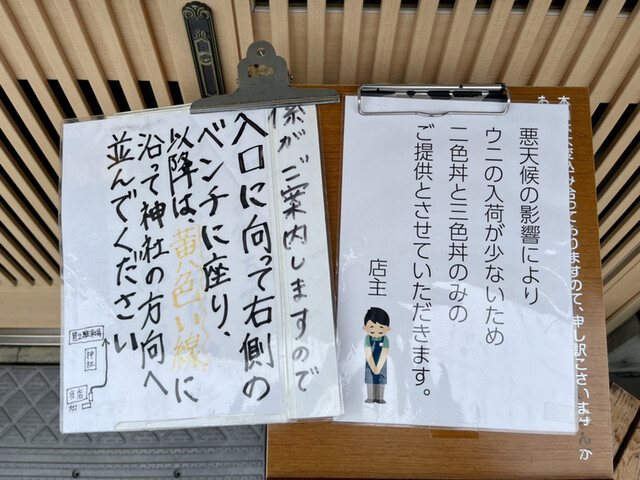 係がご案内しますので
入口に向って右側の
ベンチに座り、
以降は、黄色い線に
沿って神社の方向へ
並んでください
神社
悪天候の影響により
ウニの入荷が少ないため
二色丼と三色丼のみの
ご提供とさせていただきます。
店主
おりますので、申し訳ございませんが